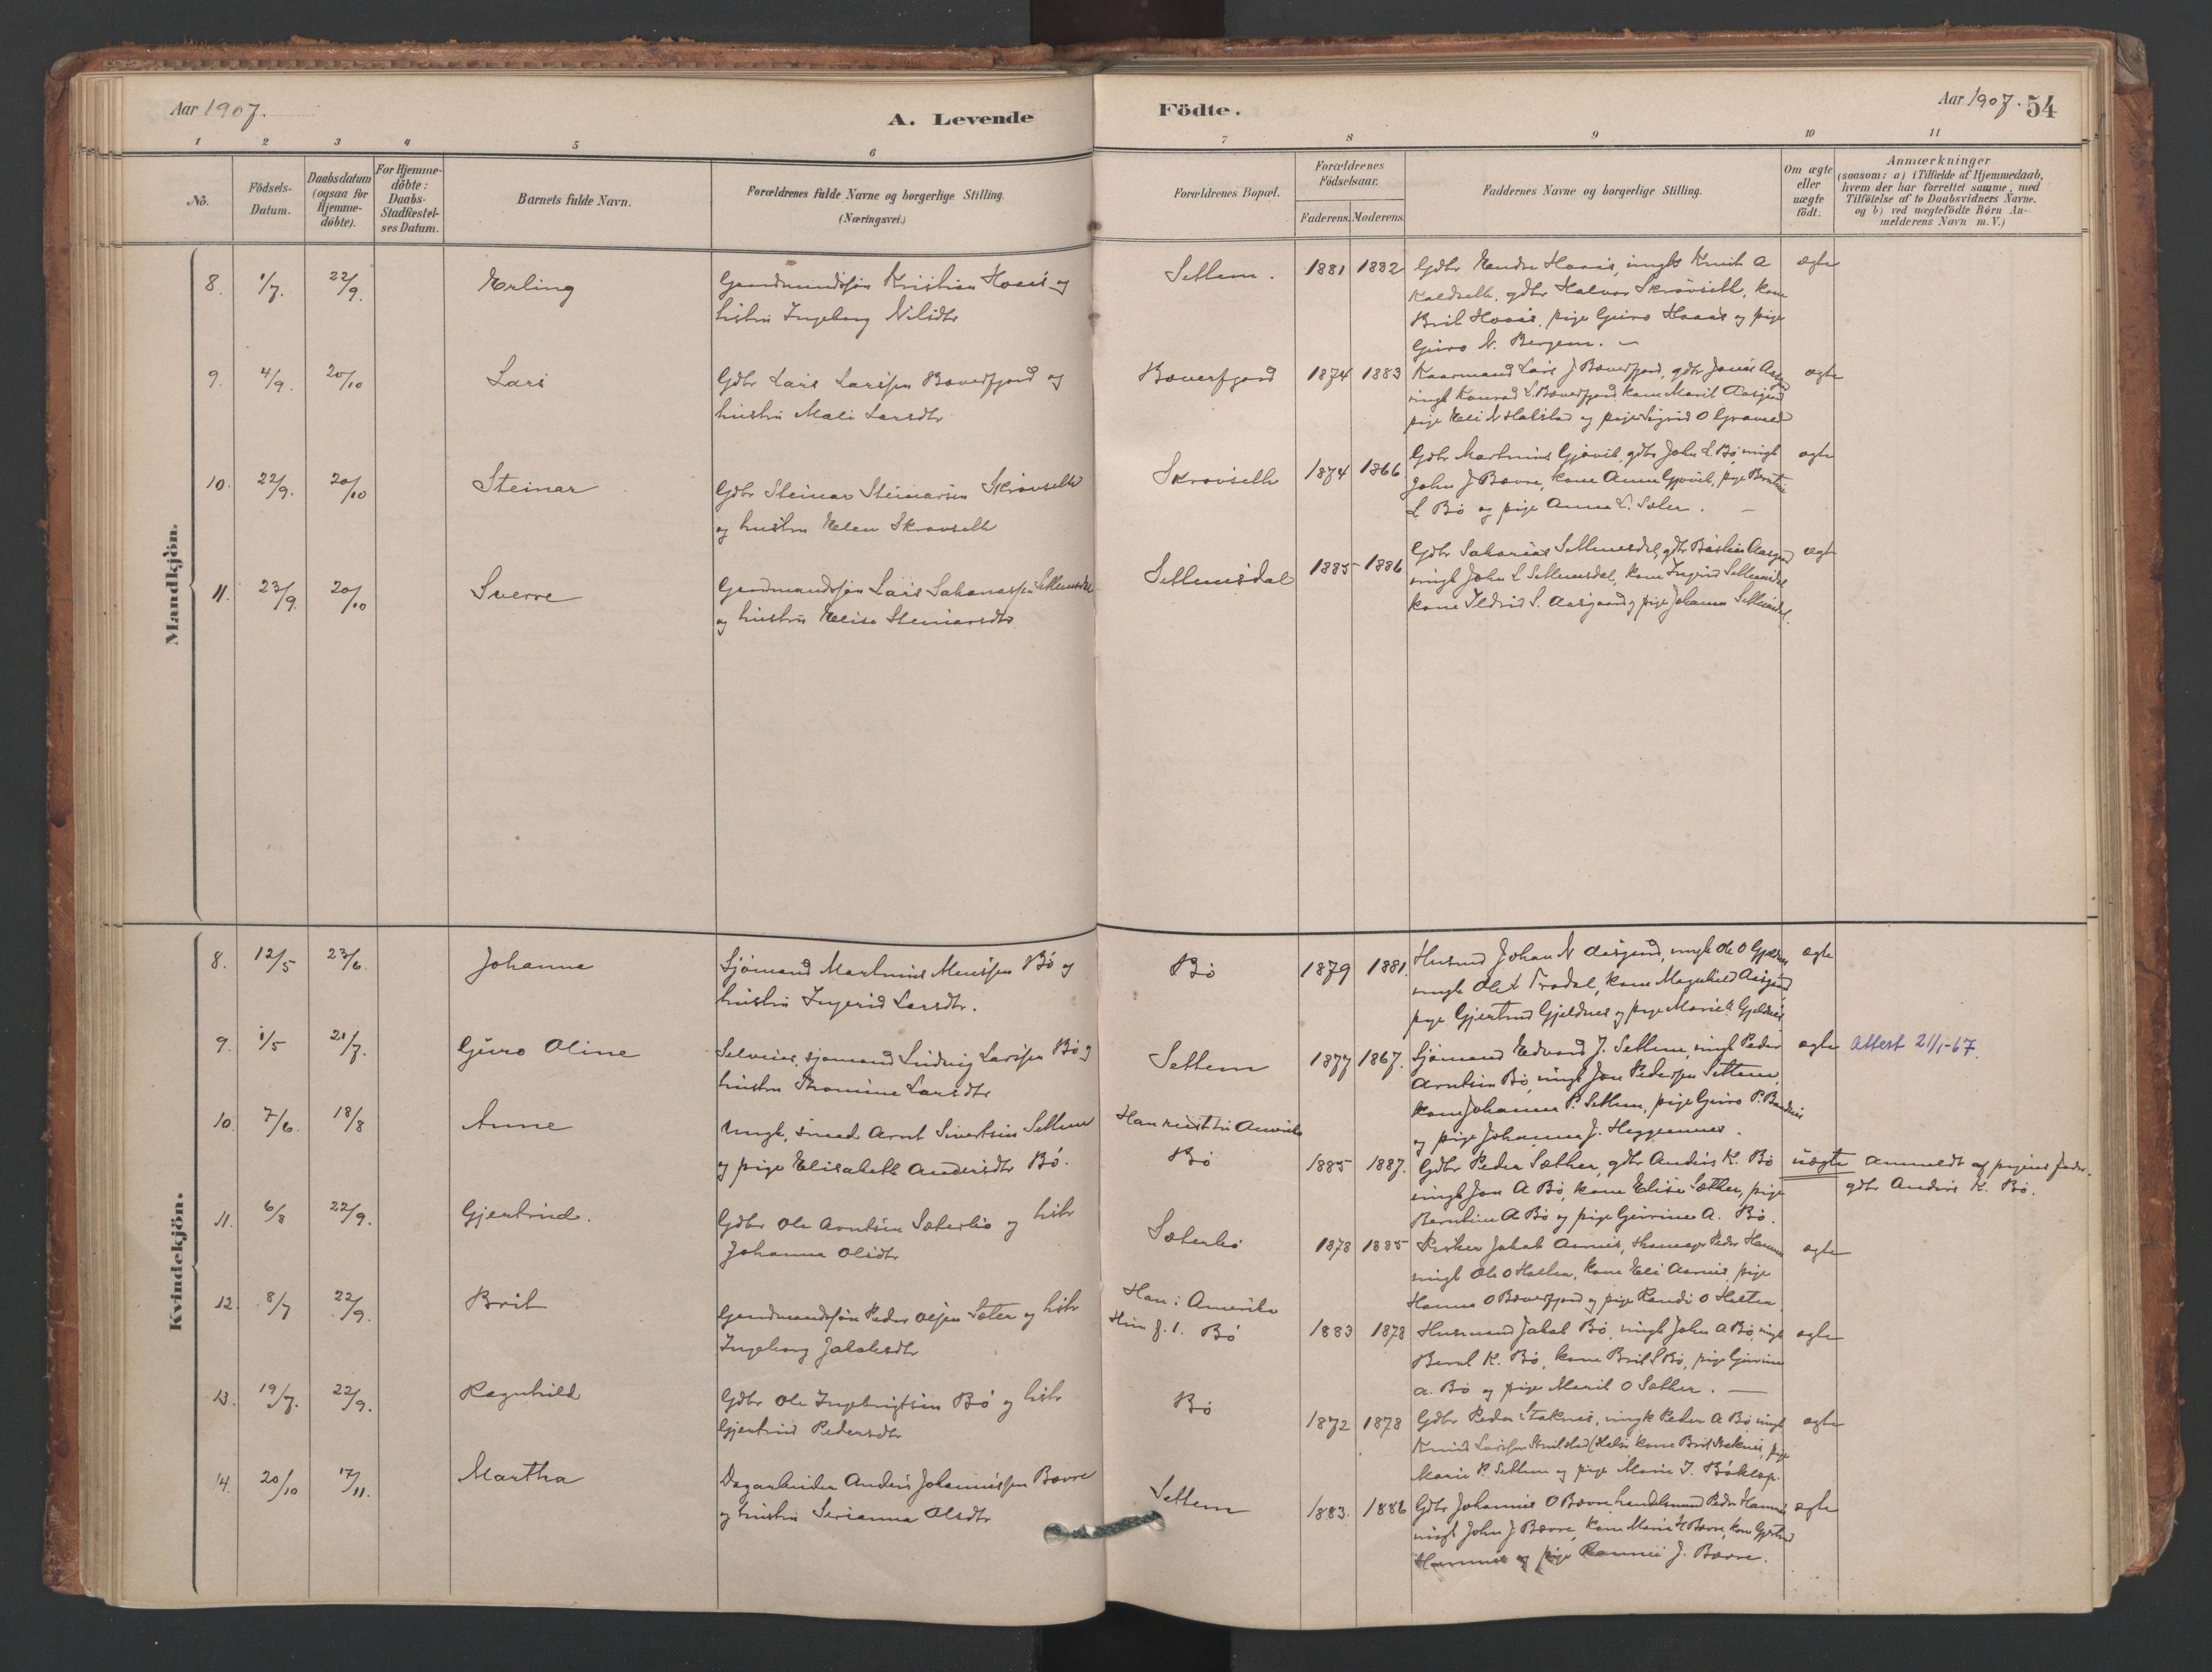 Aar 1907.
A. Levende Födte.
Aar 1907. 54
1 2 3 4 5 6 7 8 9 10 11
No.
Födsels-Datum.
Daabsdatum (ogsaa for Hjemme-döbte).
For Hjemme-döbte: Daabs-Stadfæstel-ses Datum.
Barnets fulde Navn.
Forældrenes fulde Navne og borgerlige Stilling.
(Næringsvei.)
Forældrenes Bopæl.
Forældrenes Födselsaar.
Faderens. Moderens.
Faddernes Navne og borgerlige Stilling.
Om ægte eller uægte födt.
Anmærkninger
(saasom: a) i Tilfælde af Hjemmedaab,
hvem der har forrettet samme, med
Tilföielse af to Daabsvidners Navne,
og b) ved uægtefödte Börn An-
melderens Navn m. V.)
Mandkjön.
8. 1/7. 22/9. Erling
Gaardmandssøn Kristian Hoaas og
hustru Ingeborg Nilsdtr
Settem. 1881 1882
Gdbr Endre Hoaas, ungk Knut A
Kaldseth, gdbr Halvor Skrövseth, kone
Brit Hoaas, pige Guro Hoaas og pige
Guro N. Bergem.
ægte
9. 4/9. 20/10 Lars
Gdbr Lars Larssen Bæverfjord og
hustru Mali Larsdtr
Bæverfjord 1874 1883
Kaarmand Lars J Bæverfjord, gdbr Jonas
ungk Konrad L. Bæverfjord, kone Marit Aasgaard
pige Eli N Halstad og pige Sigrid O
ægte
10. 22/9. 20/10 Steinar
Gdbr Steinar Steinarsen Skrövseth
og hustru Elen Skrovseth
Skrovseth 1874 1866
Gdbr Martinus Gjövik, gdbr John L. Bö, ungk
John J Bævre, kone Anne Gjövik, pige Berntine
L Bö og pige Anna L. Sæter.
ægte
11. 23/9. 20/10 Sverre
Gaardmandssøn Lars Sakariassen Settemsdal
og hustru Elise Steinarsdtr
Settemsdal 1885 1886
Gdbr Sakarias Settemsdal, gdbr Aasgaard
ungk John L Settemsdal, kone Ingrid Settemsdal
kone Ildrid S. Aasgaard og pige Johanna Settemsdal.
ægte
Kvindekjön.
8. 12/5 23/6. Johanna
Sjömand Martinus Monssen Bö og
hustru Ingerid Larsdtr.
Bö 1879 1881.
Husmd Johan N Aasgaard, ungk Ole O Gjeldnes
ungk Ole L Trødal, kone Magnhild Aasgaard,
pige Gjertrud Gjeldnes og pige Marie Gjeldnes
ægte
9. 1/5 21/7. Guro Oline
Selveier, sjømand Ludvig Larssen Bö og
hustru Thomine Larsdtr
Settem 1877 1867.
Sjömand Edvard J. Settem, ungk Peder
Arntsen Bö, ungk Jon Pedersen Settem,
kone Johanna P. Settem, pige Guro P.
og pige Johanna J. Heggemnes.
ægte Attest 21/1-67.
10. 7/6. 18/8 Anne
Ungk, smed Arnt Sivertsen Settem
og pige Elisabeth Andersdtr Bö.
Han reist til Amerika
Bö 1885 1887.
Gdbr Peder Sæther, gdbr Anders K. Bö
ungk Jon A Bö, kone Elise Sæther, pige
Berntine A Bö og pige Gurine A. Bö.
uægte anmeldt af pigens fader,
gdbr Anders K. Bö.
11. 6/8 22/9. Gjertrud.
Gdbr Ole Arntsen Sæterbö og hstr
Johanna Olsdtr
Sæterbö 1878 1885
Kirker Jakob Aarnes, skomager Peder Hamnes
ungk Ole O Holten, kone Eli Aarnes, pige
Hanna O Bæverfjord og pige Randi O Holten
ægte
12. 8/7 22/9. Brit
Gaardmandssøn Peder Olsen Sæter og hstr
Ingeborg Jakobsdtr
Han i Amerika
Hun f. t. Bö 1883 1878
Husmand Jakob Bö, ungk John A Bö, ungk
Bernt K. Bö, kone Brit Bö, pige Gurine
A. Bö og pige Marit O Sæther.
ægte
13. 19/7. 22/9. Ragnhild
Gdbr Ole Ingebrigtsen Bö og hstr
Gjertrud Pedersdtr
Bö 1872 1878
Gdbr Peder Staknes, ungk Peder A Bö, ungk
Knud Larssen, kone Brit Staknes, pige
Marie P. Settem og pige Marie J. Böklep.
ægte
14. 20/10 17/11. Martha
Dagarbeider Anders Johannessen Bævre
og hustru Serianna Olsdtr
Settem 1883. 1886
Gdbr Johannes O Bævre, handelsmand Peder Hamnes
ungk John J Bævre, kone Marie H Bævre, kone Gjertrud
Hamnes og pige J. Bævre.
ægte